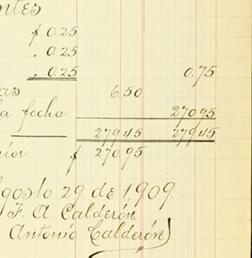 ntes
$ 0.25
. 0.25
. 0.25 0.75
as 6.50
la fecha 270.95
279.45 279.45
rior $ 270.95
gosto 29 de 1909.
F. A. Calderón
Antonio Calderón)